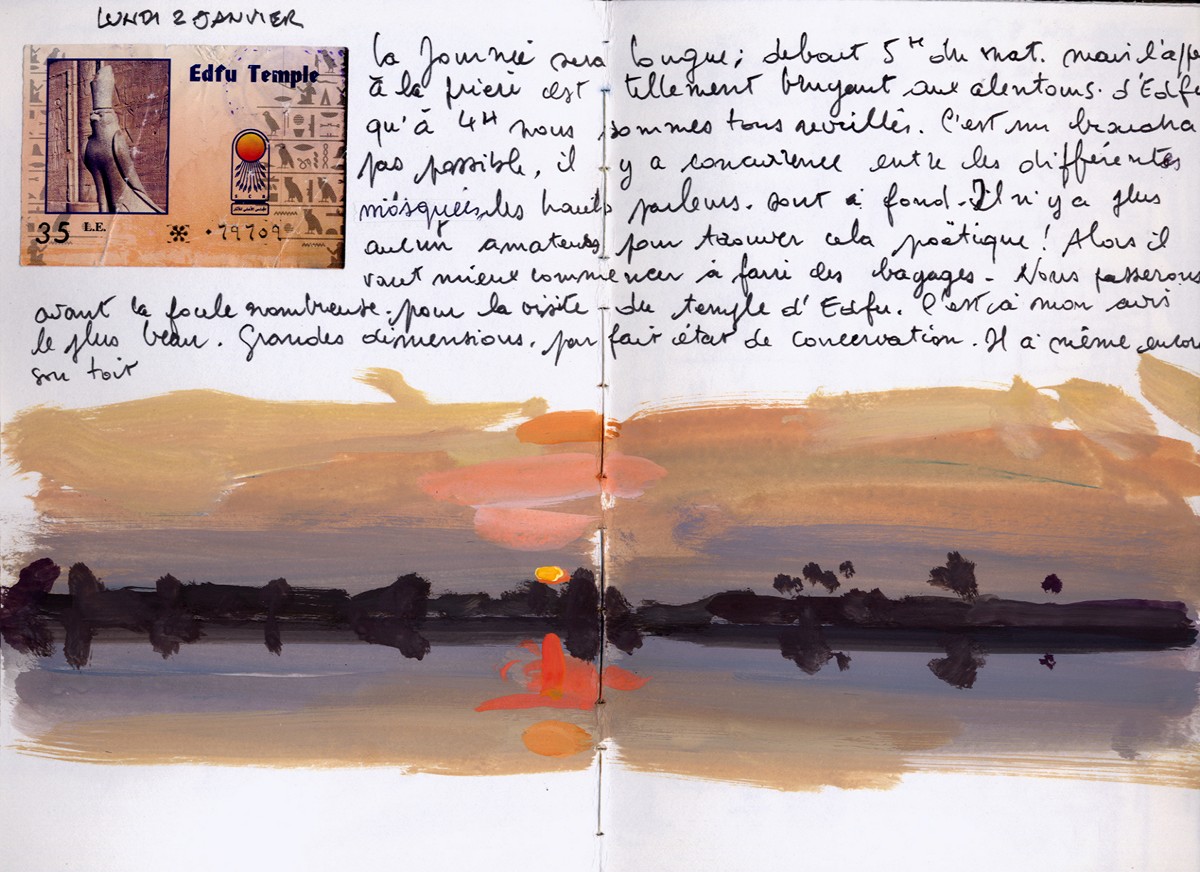 LUNDI 2 JANVIER
Edfu Temple
35 L.E.
79709
La Journée sera longue; debout 5H du mat. mais l'appe
à la prière est tellement bruyant aux alentours d'Edfu
qu'à 4H nous sommes tous reveillés. C'est un brouaha
pas possible, il y a concurrence entre les différentes
mosquées, les hauts parleurs sont à fond. Il n'y a plus
aucun amateurs pour trouver cela poëtique! Alors il
vaut mieux commencer à faire des bagages - Nous passerons
avant la foule nombreuse pour la visite du temple d'Edfu. C'est à mon avis
le plus beau. Grandes dimensions, parfait état de concervation. Il a même encore
son toit